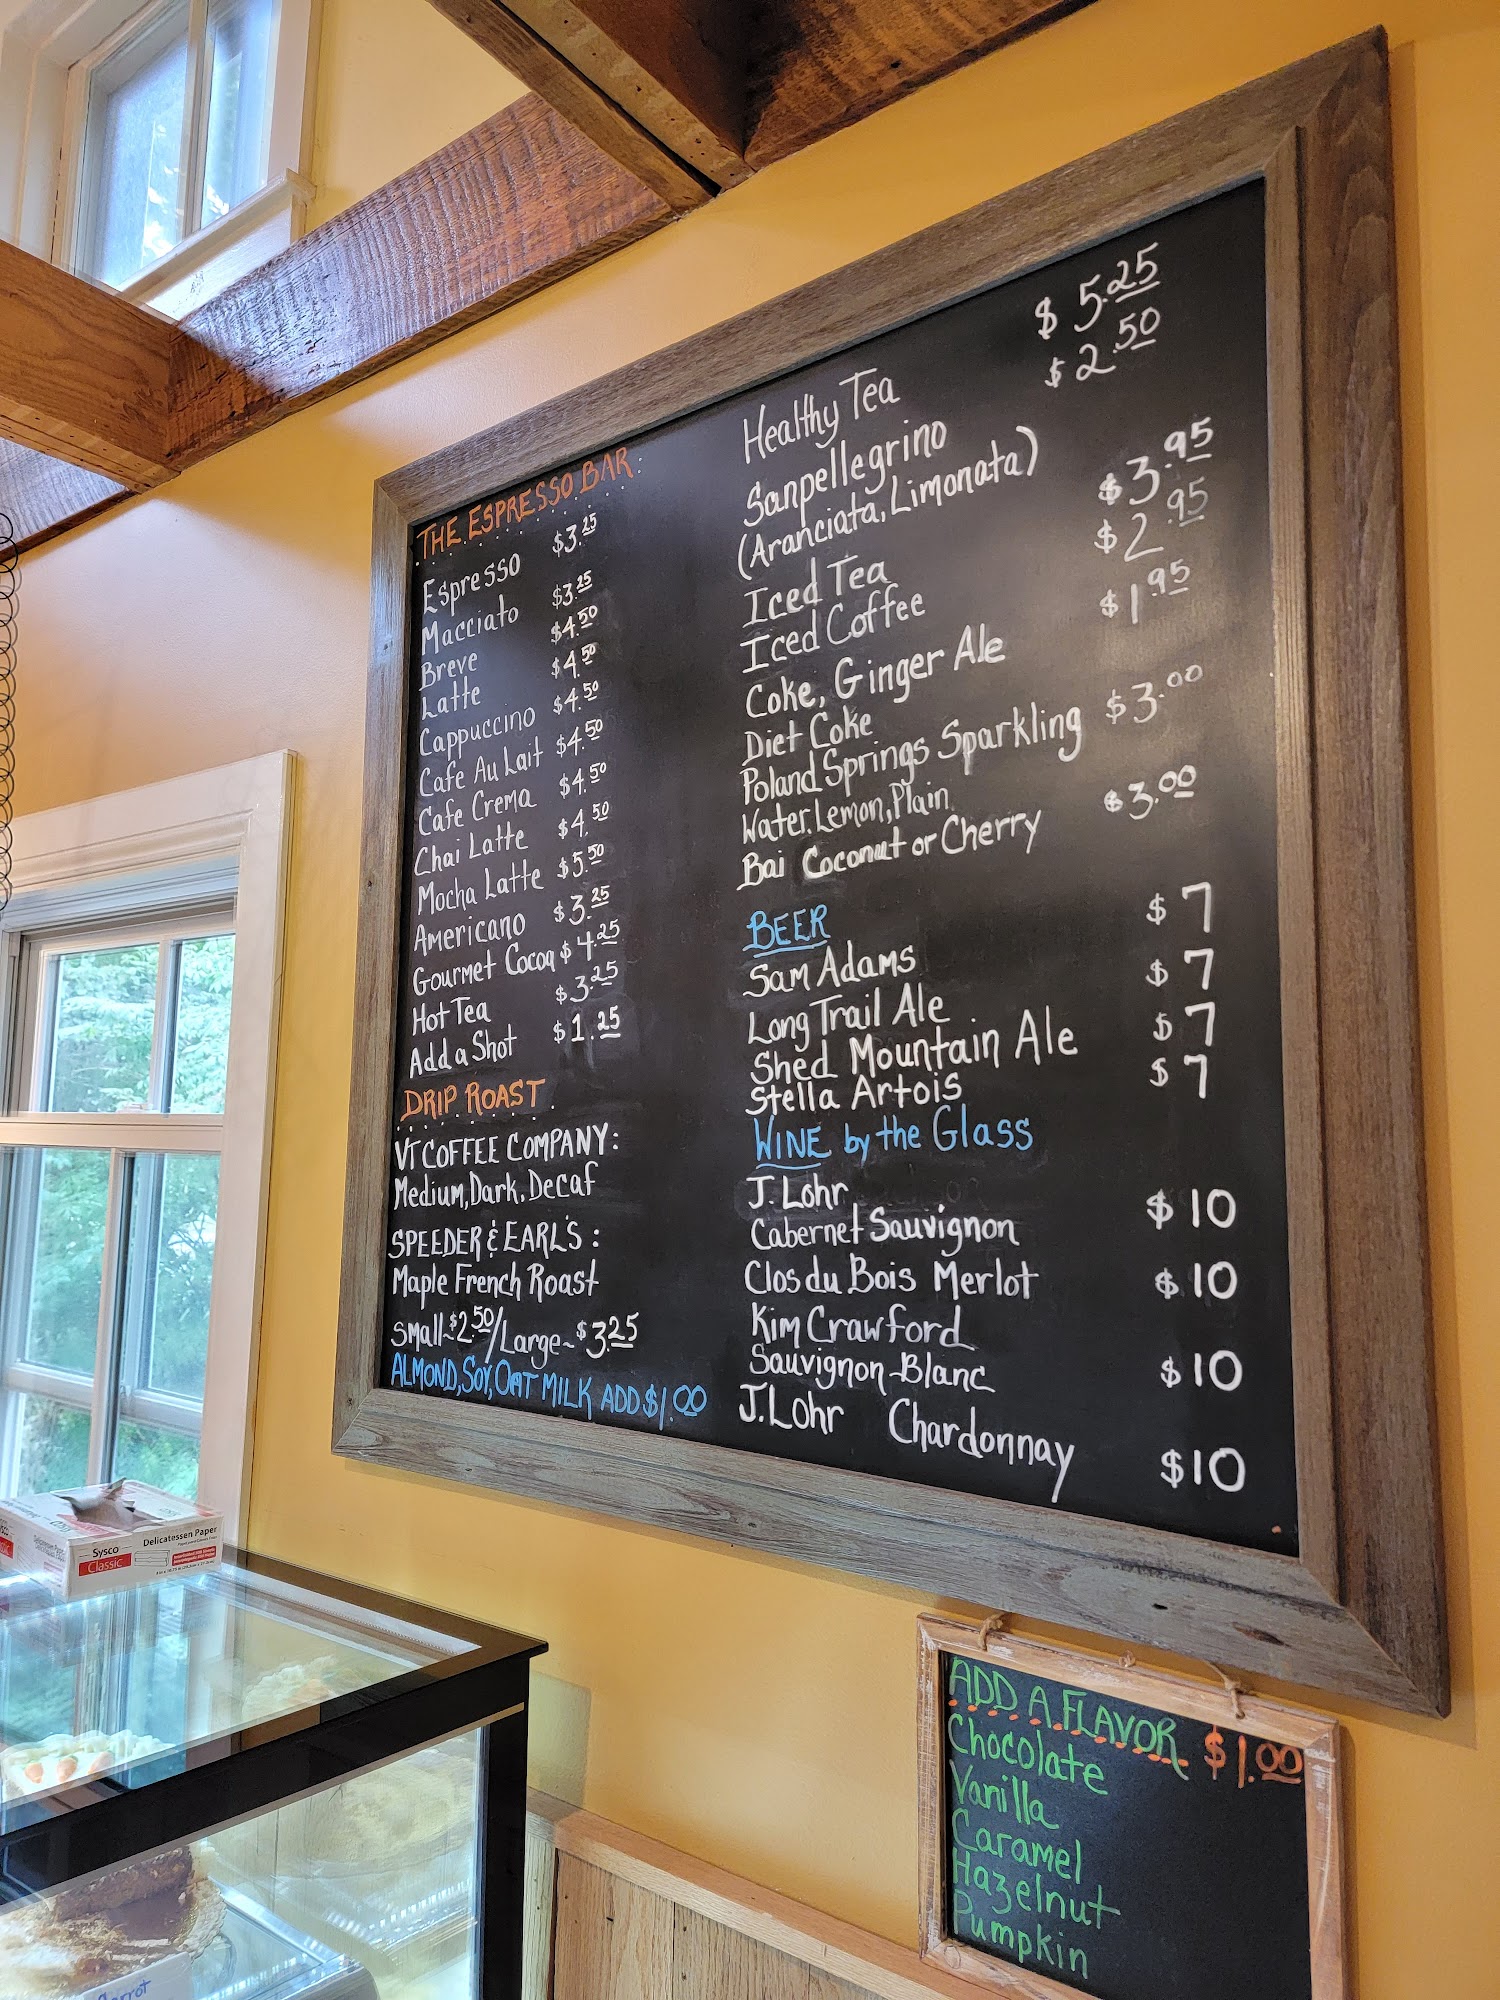 THE ESPRESSO BAR:
Espresso $3.25
Macciato $3.25
Breve $4.50
Latte $4.50
Cappuccino $4.50
Cafe Au Lait $4.50
Cafe Crema $4.50
Chai Latte $4.50
Mocha Latte $5.50
Americano $3.25
Gourmet Cocoa $4.25
Hot Tea $3.25
Add a Shot $1.25
DRIP ROAST
VT COFFEE COMPANY:
Medium, Dark, Decaf
SPEEDER & EARL'S:
Maple French Roast
Small~$2.50/Large~$3.25
ALMOND, SOY, OAT MILK ADD $1.00
Healthy Tea $5.25
Sanpellegrino $2.50
(Aranciata, Limonata)
Iced Tea $3.95
Iced Coffee $2.95
Coke, Ginger Ale $1.95
Diet Coke
Poland Springs Sparkling $3.00
Water. Lemon, Plain
Bai Coconut or Cherry $3.00
BEER
Sam Adams $7
Long Trail Ale $7
Shed Mountain Ale $7
Stella Artois $7
WINE by the Glass
J. Lohr
Cabernet Sauvignon $10
Clos du Bois Merlot $10
Kim Crawford
Sauvignon Blanc $10
J. Lohr Chardonnay $10
ADD A FLAVOR $1.00
Chocolate
Vanilla
Caramel
Hazelnut
Pumpkin
Sysco
Classic
Delicatessen Paper